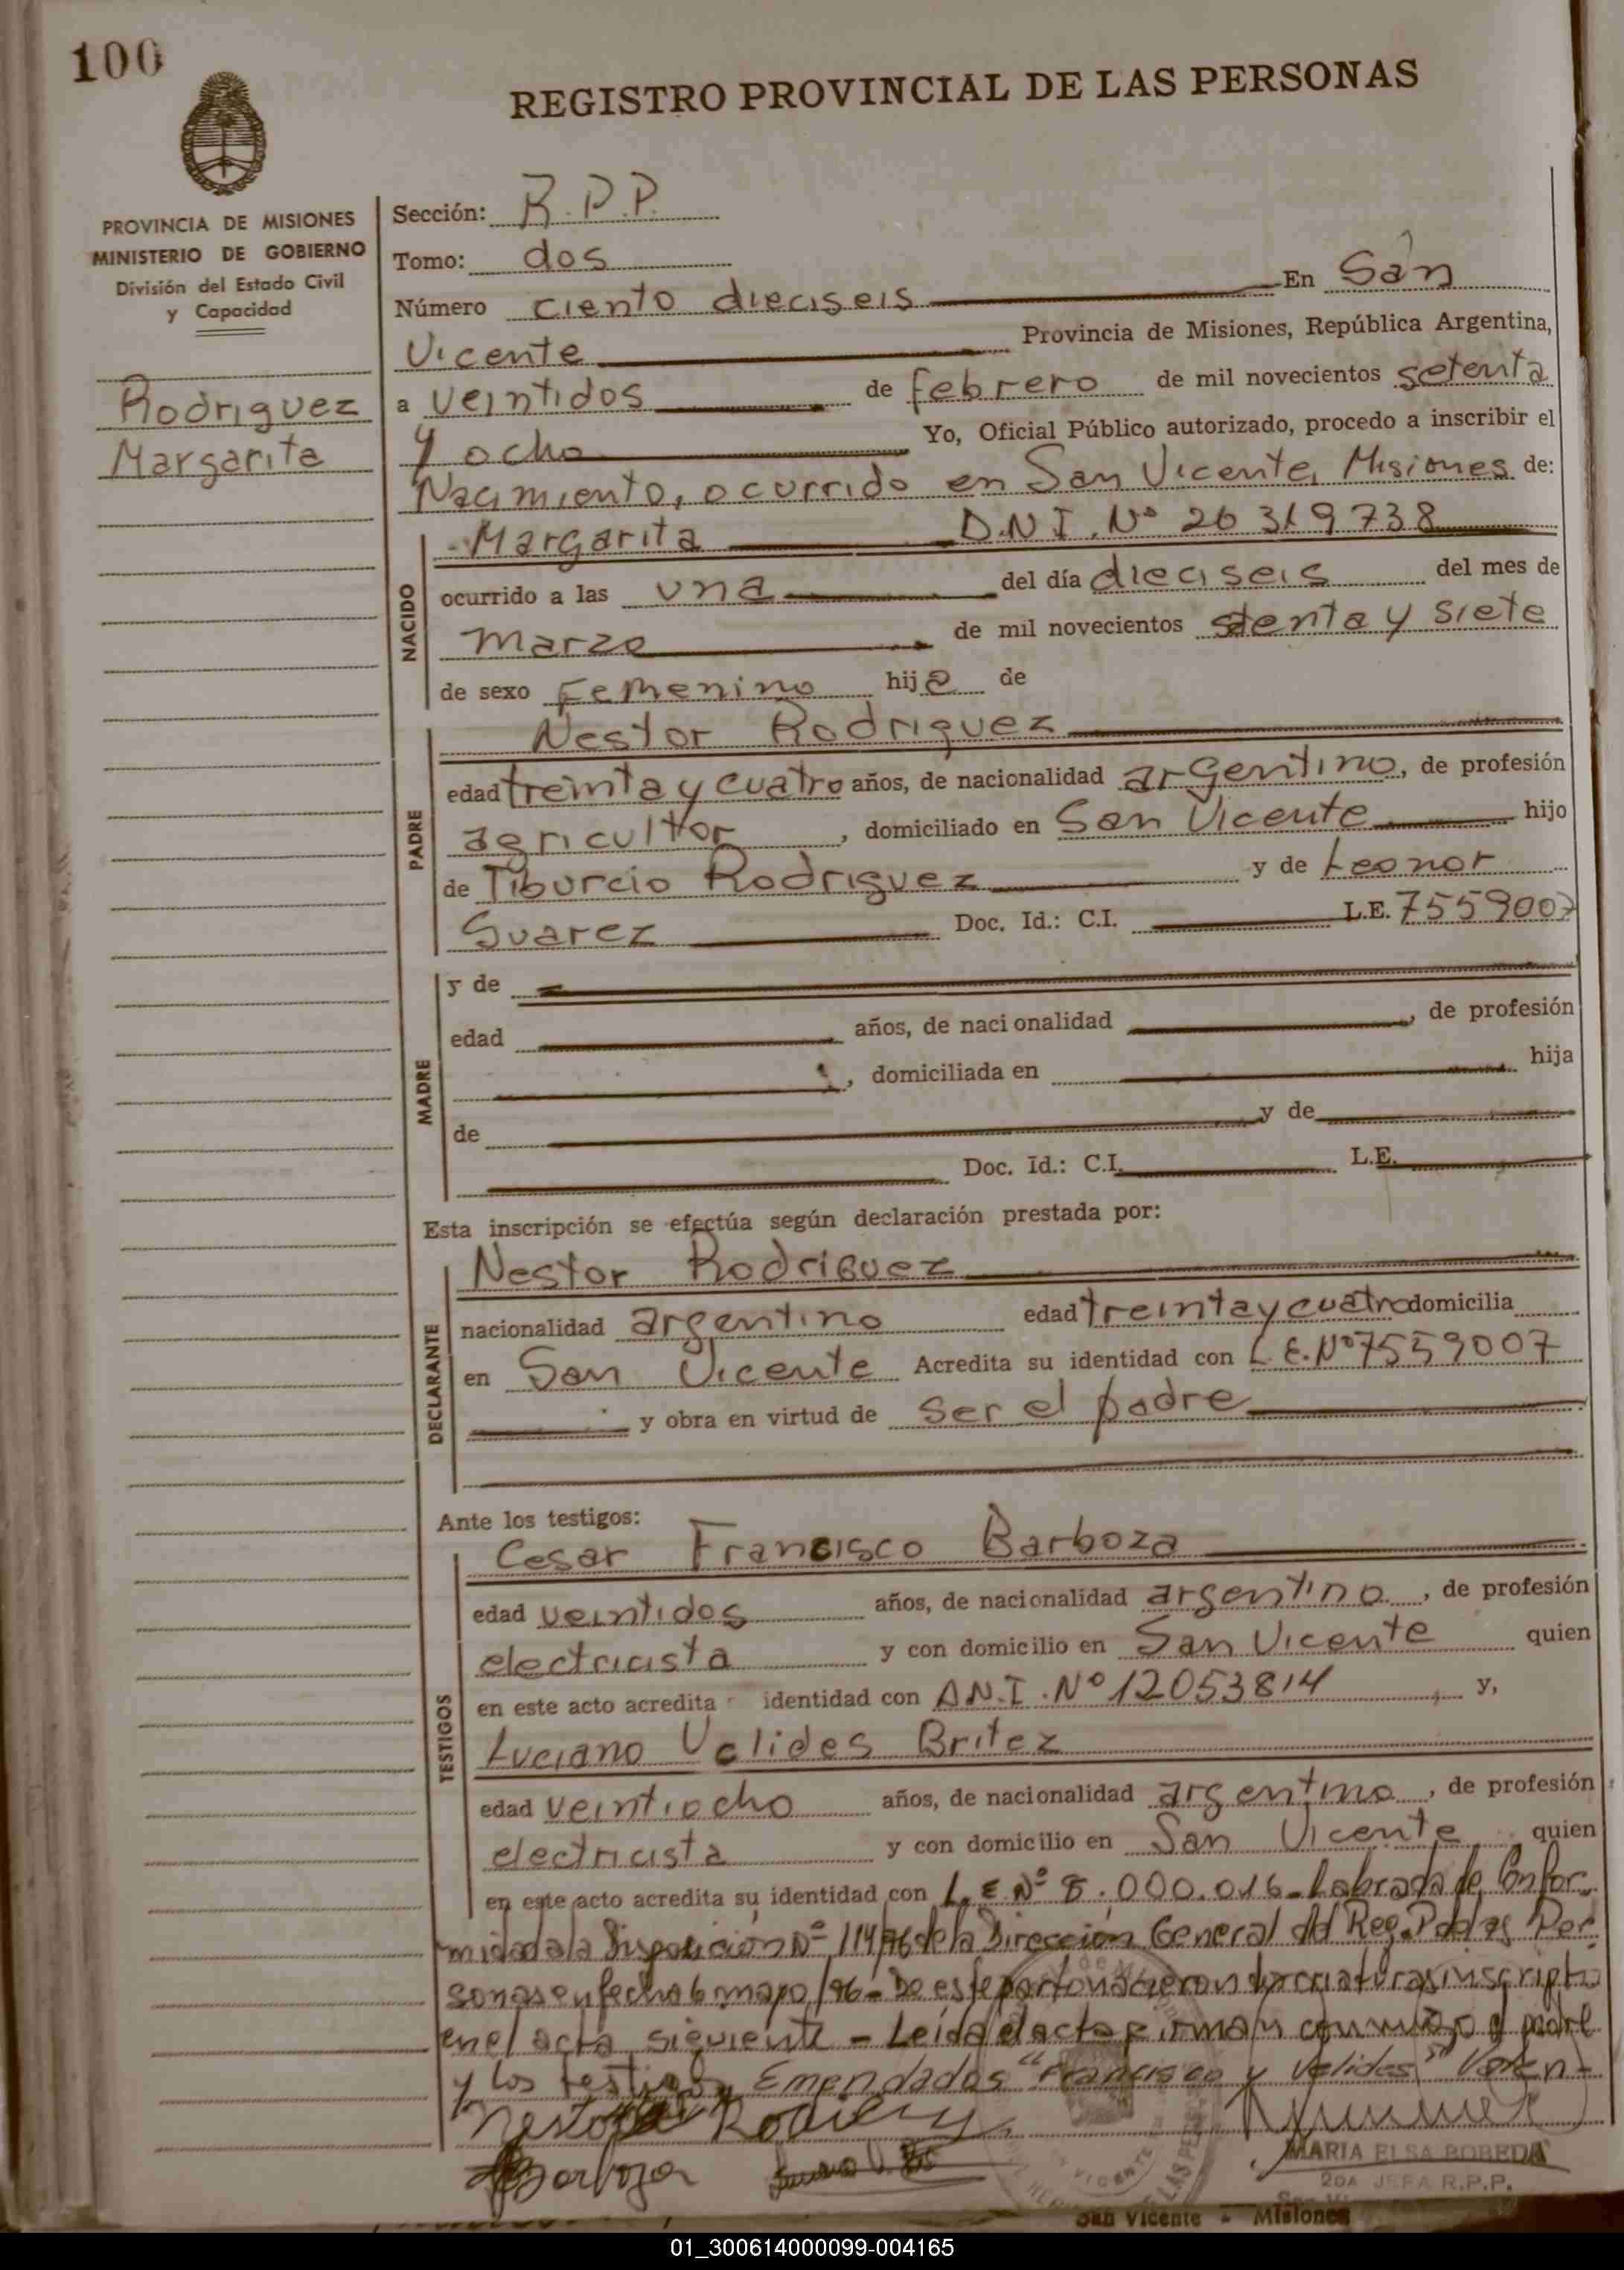 100
REGISTRO PROVINCIAL DE LAS PERSONAS
PROVINCIA DE MISIONES
MINISTERIO DE GOBIERNO
División del Estado Civil
y Capacidad
Rodriguez
Margarita
Sección: R.P.P.
Tomo: dos
Número ciento dieciseis En San
Vicente Provincia de Misiones, República Argentina,
a veintidos de febrero de mil novecientos setenta
y ocho Yo, Oficial Público autorizado, procedo a inscribir el
Nacimiento, ocurrido en San Vicente, Misiones de:
NACIDO
Margarita D.N.I. Nº 26319738
ocurrido a las una del día dieciseis del mes de
marzo de mil novecientos stenta y siete
de sexo Femenino hija de
PADRE
Nestor Rodriguez
edad treinta y cuatro años, de nacionalidad argentino, de profesión
agricultor, domiciliado en San Vicente hijo
de Tiburcio Rodriguez y de Leonor
Suarez Doc. Id.: C.I. L.E. 7559007
MADRE
y de
edad años, de nacionalidad , de profesión
, domiciliada en hija
de y de
Doc. Id.: C.I. L.E.
Esta inscripción se efectúa según declaración prestada por:
DECLARANTE
Nestor Rodriguez
nacionalidad argentino edad treinta y cuatro domicilia
en San Vicente Acredita su identidad con L.E. Nº 7559007
y obra en virtud de ser el padre
Ante los testigos:
TESTIGOS
Cesar Francisco Barboza
edad veintidos años, de nacionalidad argentino, de profesión
electricista y con domicilio en San Vicente quien
en este acto acredita identidad con D.N.I. Nº 12053814 y,
Luciano Velides Britez
edad veintiocho años, de nacionalidad argentino, de profesión
electricista y con domicilio en San Vicente quien
en este acto acredita su identidad con L.E Nº 8.000.016 - Labrada de Confor-
midad a la Disposición Nº 114/76 de la Dirección General del Reg. P. de las Per
sonas en fecha 6 mayo /76 - De este parto nacieron dos criaturas inscripto
en el acta siguiente - Leída el acta firman conmigo el padre
y los testigos Emendados "Francisco y Velides" Valen-
Nestor Rodriguez
Barboza
MARIA ELSA BOBEDA
2DA JEFA R.P.P.
San Vicente - Misiones
01_300614000099-004165